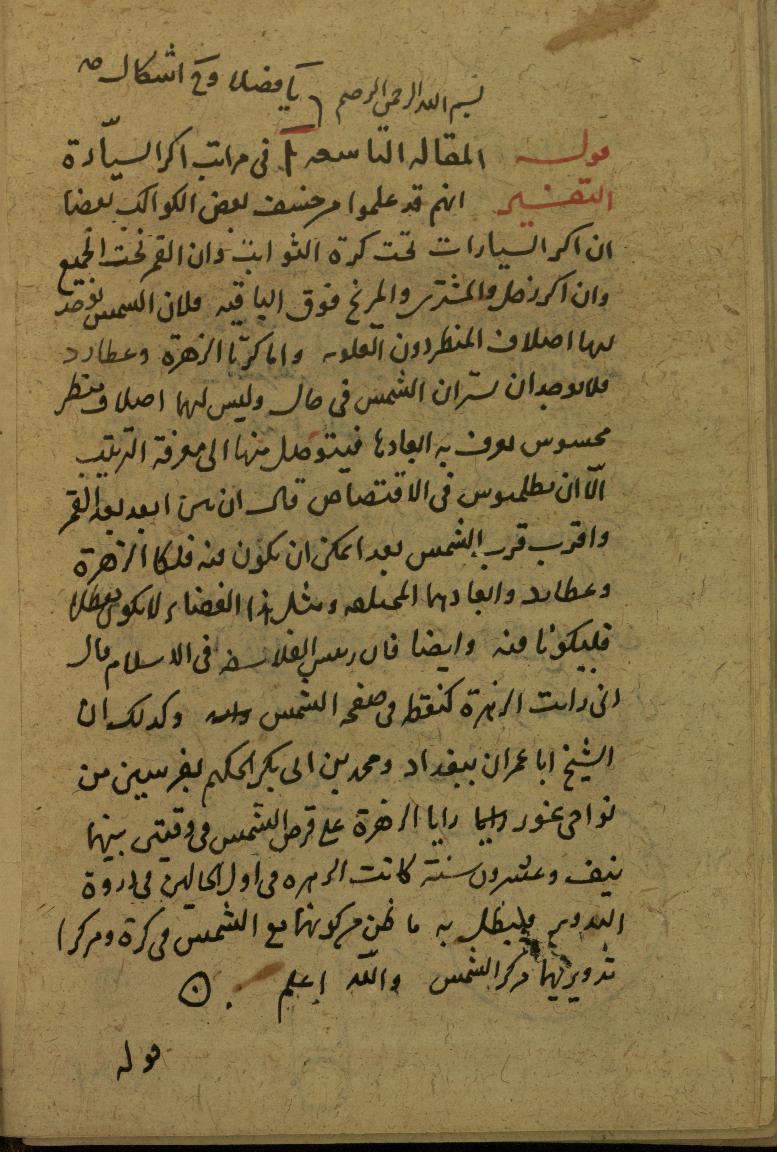 بسم الله الرحمن الرحيم يا فصلا وح اشكال
قوله المقاله التاسعه ا فى مراتب اكر السيّارة
التفسير انهم قد علموا من خسف بعض الكواكب بعضا
ان اكر السيارات تحت كرة الثوابت وان القمر تحت الجميع
وان اكر زحل والمشترى والمريخ فوق الباقيه فلان الشمس يوجد
لها اختلاف المنظر دون العلويه واما كرتا الزهرة وعطارد
فلا يوجد ان يستران الشمس فى حال وليس لهما اختلاف منظر
محسوس يعرف به ابعادها فيتوصل منها الى معرفة الترتيب
الّا ان بطلميوس فى الاقتصاص قال ان بين ابعد بعد القمر
واقرب قرب الشمس بعدا يمكن ان يكون فيه فلكا الزهرة
وعطارد وابعادهما المختلفه ومثل هذا الفضاء لا يكون معطلا
فليكونا فيه وايضا فان رييس الفلاسفه فى الاسلام قال
انى رايت الزهرة كنقطه فى صفحه الشمس وكذلك ان
الشيخ ابا عمران ببغداد ومحمد بن ابى بكر الحكيم بفرسين من
نواحى رايا الزهرة على قرص الشمس فى وقيتى بينهما
نيف وعشرون سنة كانت الزهره فى اول الحالين فى ذروة
التدوير فيبطل به ما ظن من كونها مع الشمس فى كرة ومركزا
تدويريهما مركز الشمس والله اعلم
قوله